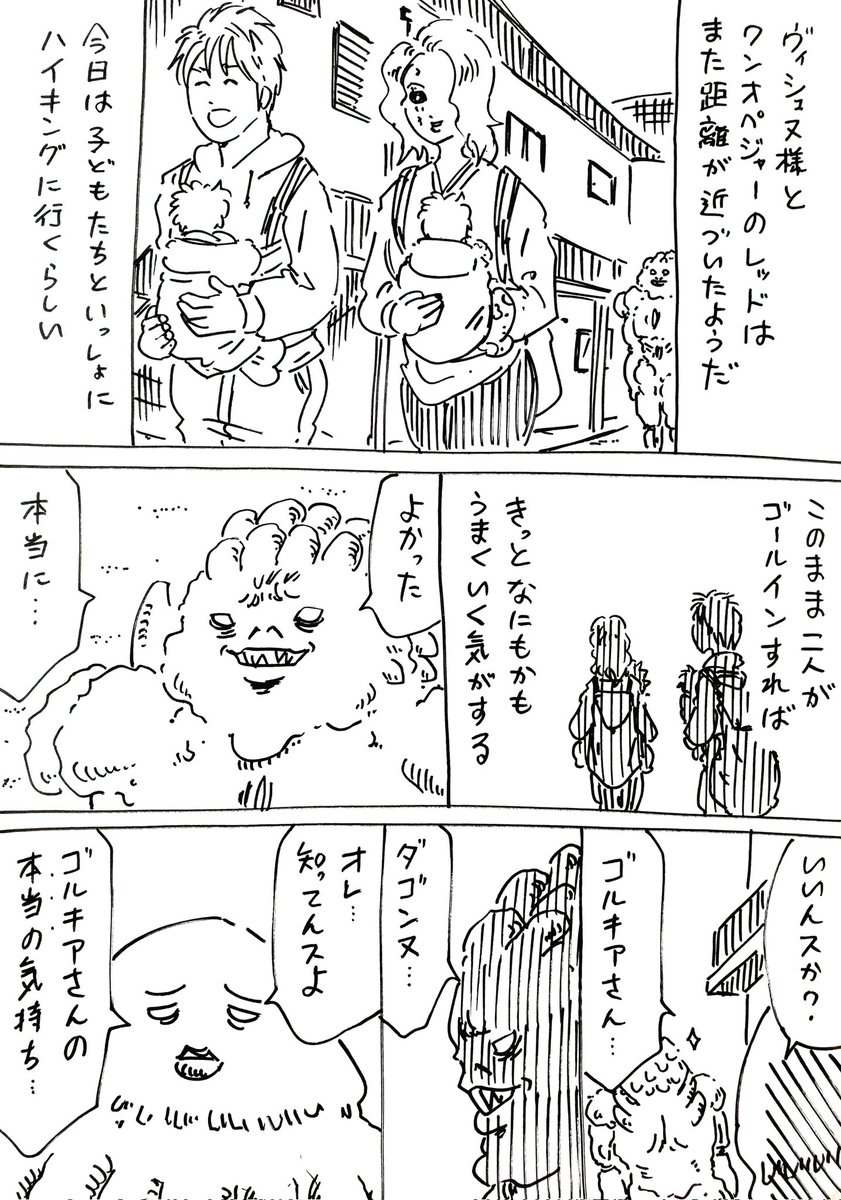 ヴィシュヌ様と
ワンオペジャーのレッドは
また距離が近づいたようだ
今日は子どもたちといっしょに
ハイキングに行くらしい
このまま二人が
ゴールインすれば
きっとなにもかも
うまくいく気がする
よかった
本当に…
いいんスか?
ゴルキアさん…
ダゴンヌ…
オレ…
知ってんスよ
ゴルキアさんの
本当の気持ち…